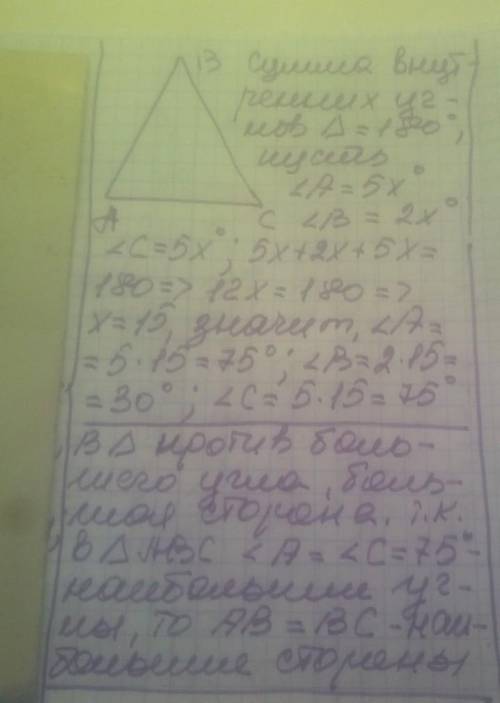 B Сумма внут-
ренних уг-
лов Δ = 180°,
пусть
∠A = 5x°
A C ∠B = 2x°
∠C = 5x°; 5x+2x+5x=
180 => 12x = 180 =>
x=15, значит, ∠A=
= 5·15 = 75°; ∠B = 2·15=
= 30°; ∠C = 5·15 = 75°
В Δ против боль-
шего угла, боль-
шая сторона, т.к.
в Δ ABC ∠A = ∠C = 75°-
наибольшие уг-
лы, то AB = BC - наи-
большие стороны